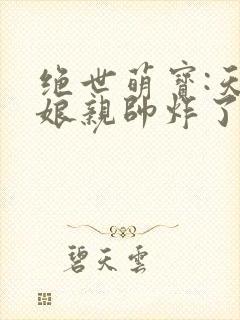 绝世萌寶:天
娘親帥炸了
碧天雲